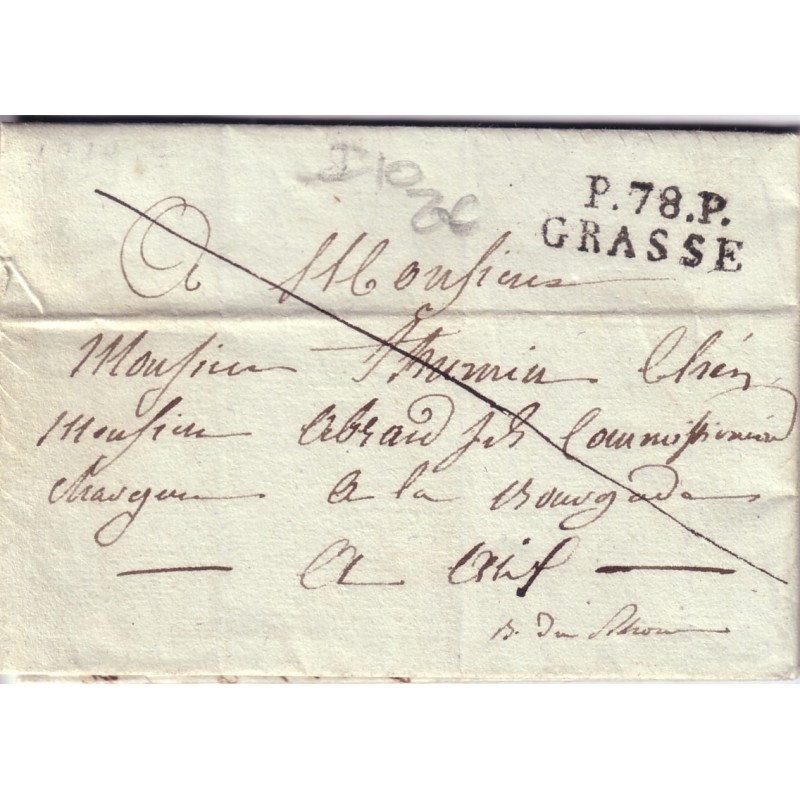 P.78.P.
GRASSE
A Monsieur
Monsieur Thumin Chéz
Monsieur Abraud fils Commissionnaire
Chargeur A la Bourgade
— A Aix —
B. du Rhone